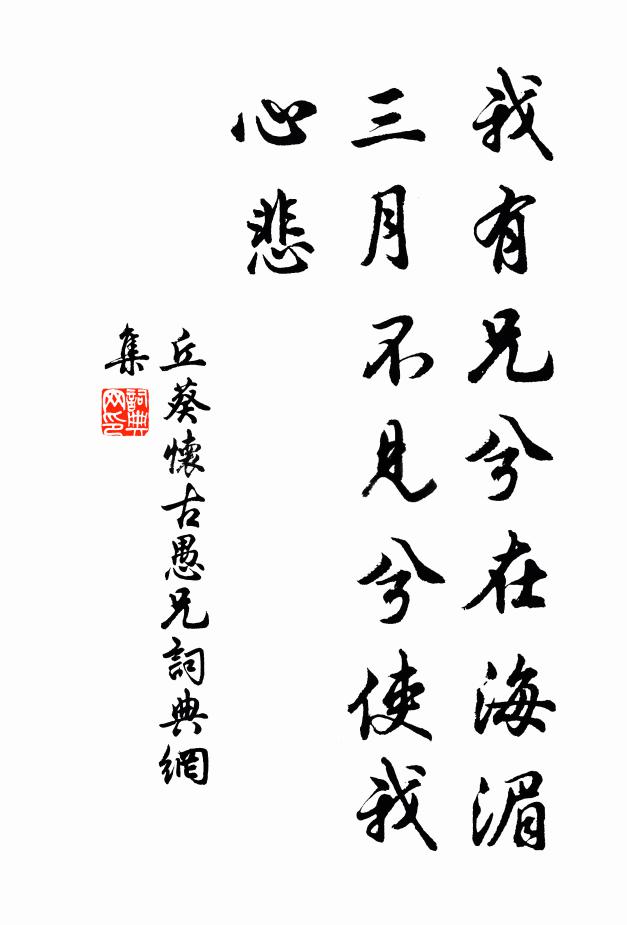 我有兄兮在海湄
三月不見兮使我
心悲
丘葵懷古愚兄詞典網
集
詞典网印